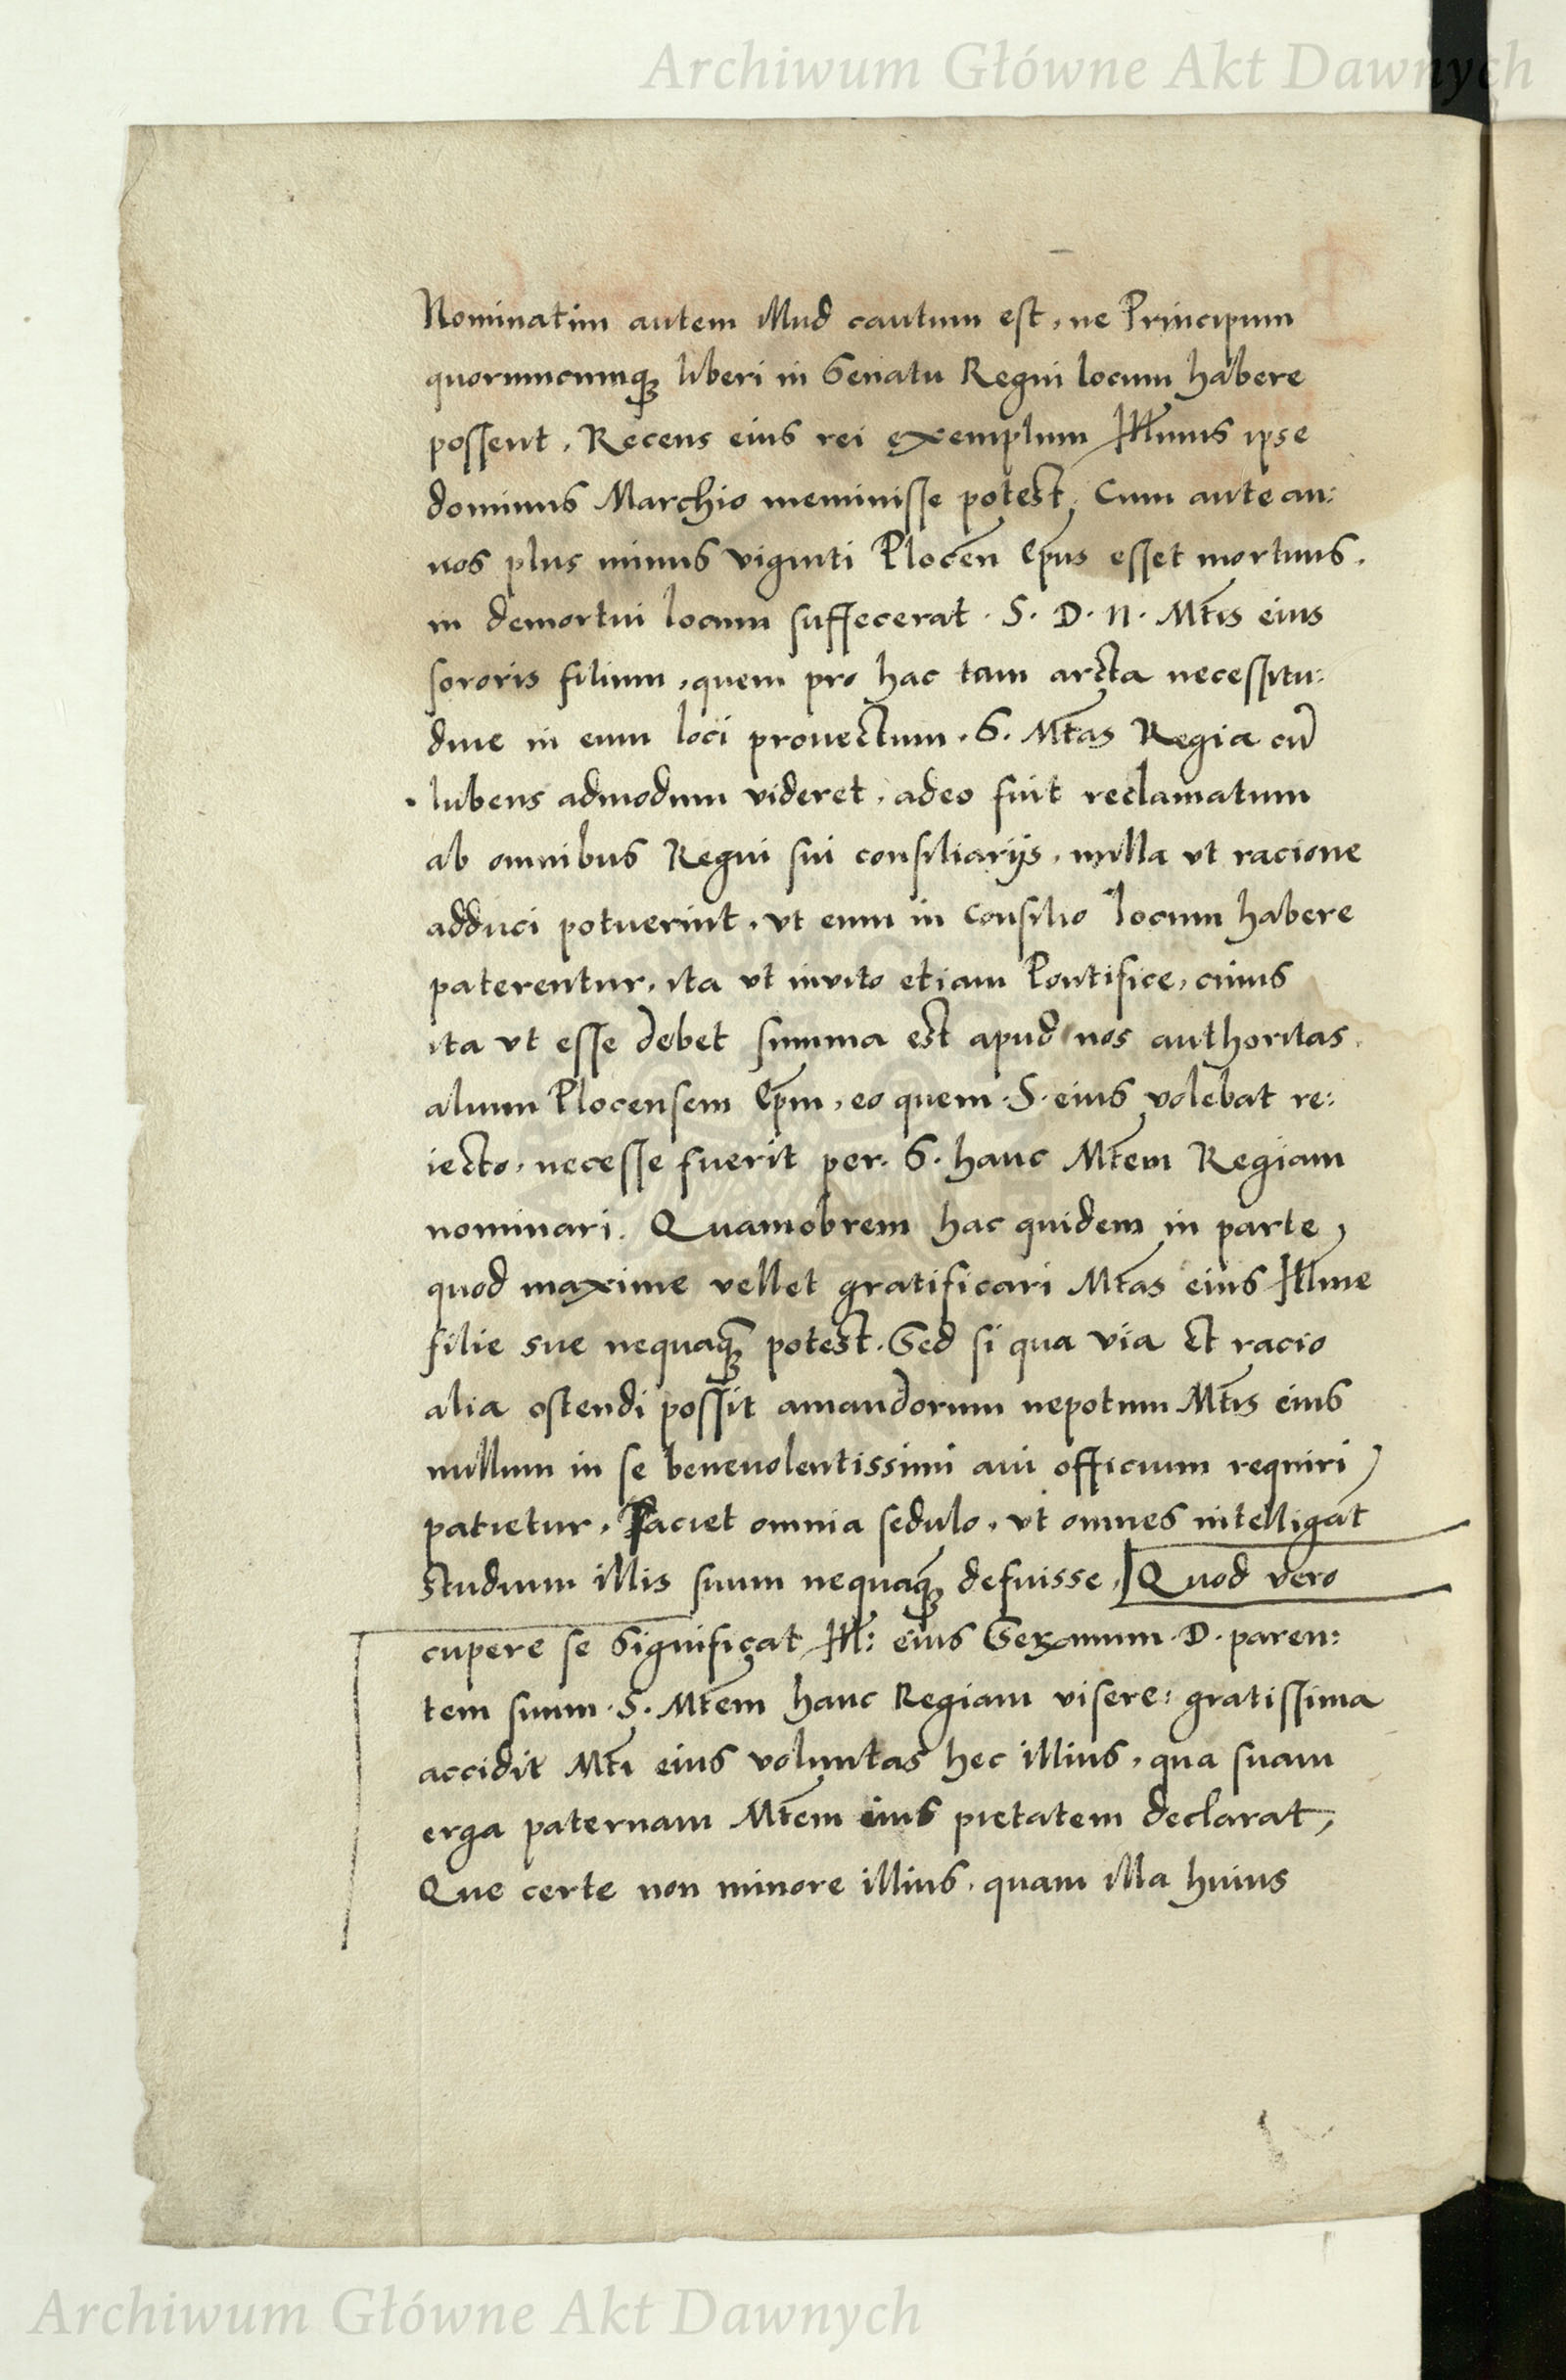 Archiwum Główne Akt Dawnych
Nominatim autem illud cautum est, ne Principum
quorumcumq; liberi in Senatu Regni locum habere
possent. Recens eius rei exemplum Illmus ipse
dominus Marchio meminisse potest. Cum ante an:
nos plus minus viginti Plocen Epus esset mortuus.
in demortui locum suffecerat. S. D. N. Mtis eius
sororis filium, quem pro hac tam arcta necessitu:
dine in eum loci prouectum. S. Mtas Regia cu͂
lubens admodum videret, adeo fuit reclamatum
ab omnibus Regni sui consiliarijs, nulla vt racione
adduci potuerint, vt eum in Consilio locum habere
paterentur, ita vt invito etiam Pontifice, cuius
ita vt esse debet summa est apud nos authoritas.
alium Plocensem Epm, eo quem S. eius volebat re:
iecto, necesse fuerit per. S. hanc Mtem Regiam
nominari. Quamobrem hac quidem in parte,
quod maxime vellet gratificari Mtas eius Illme
filie sue nequaq; potest. Sed si qua via et racio
alia ostendi possit amandorum nepotum Mtis eius
nullum in se beneuolentissimi aui officium requiri
patietur. Faciet omnia sedulo, vt omnes intelligat
studium illis suum nequaq; defuisse. Quod vero
cupere se significat Ill: eius Serxmum. D. paren:
tem suum. S. Mtem hanc Regiam visere: gratissima
accidit Mti eius voluntas hec illius, qua suam
erga paternam Mtem eius pietatem declarat,
Que certe non minore illius, quam illa huius
Archiwum Główne Akt Dawnych